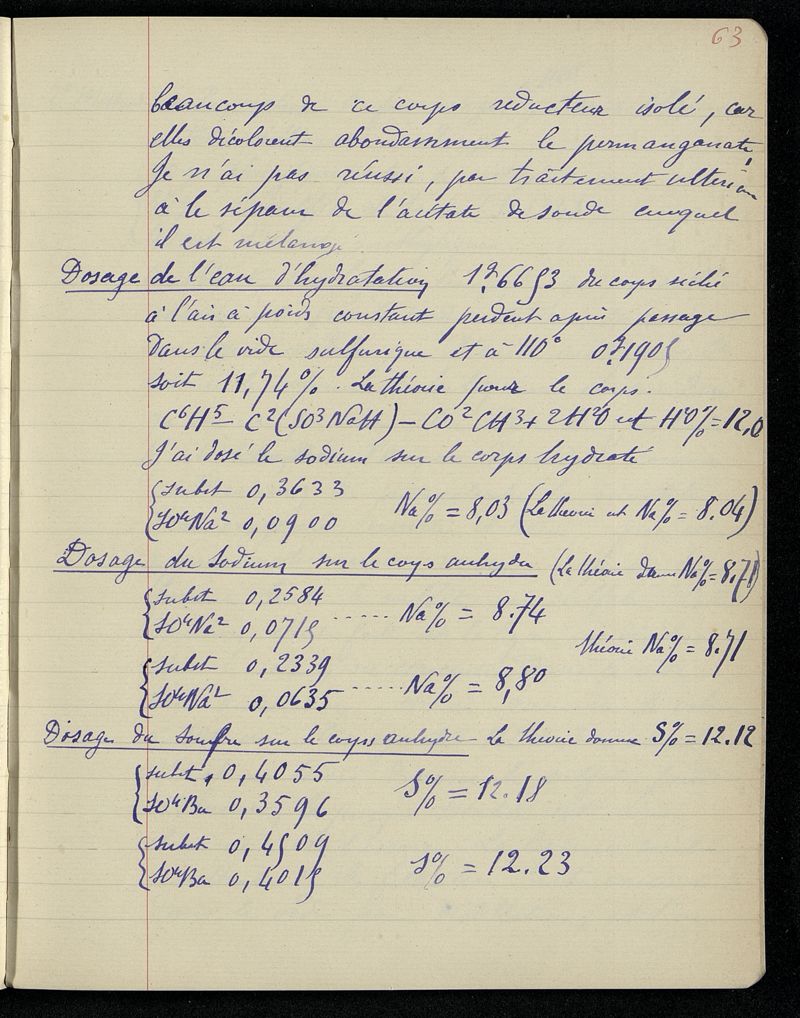 63
beaucoup de ce corps reducteur isolé, car
elles décolorent abondamment le permanganate.
Je n'ai pas réussi, par traitement ultérieur
à le séparer de l'acétate de soude auquel
il est mélangé.
Dosage de l'eau d'hydratation 1g,6653 du corps séché
à l'air à poids constant perdent après passage
Dans le vide sulfurique et à 110° 0g,1905
soit 11,74%. La théorie pour le corps.
C⁶H⁵ - C²(SO³NaH) - CO²CH³ + 2H²O est H²O% = 12,0
J'ai dosé le sodium sur le corps hydraté
{ subst 0,3633
{ SO⁴Na² 0,0900 Na% = 8,03 (La théorie est Na% = 8.04)
Dosage du sodium sur le corps anhydre (La théorie donne Na% = 8.71)
{ subst 0,2584
{ SO⁴Na² 0,0715 ..... Na% = 8.74
théorie Na% = 8.71
{ subst 0,2339
{ SO⁴Na² 0,0635 ..... Na% = 8,80
Dosage du soufre sur le corps anhydre La théorie donne S% = 12.12
{ subst 0,4055
{ SO⁴Ba 0,3596 S% = 12.18
{ subst 0,4509
{ SO⁴Ba 0,4015 S% = 12.23